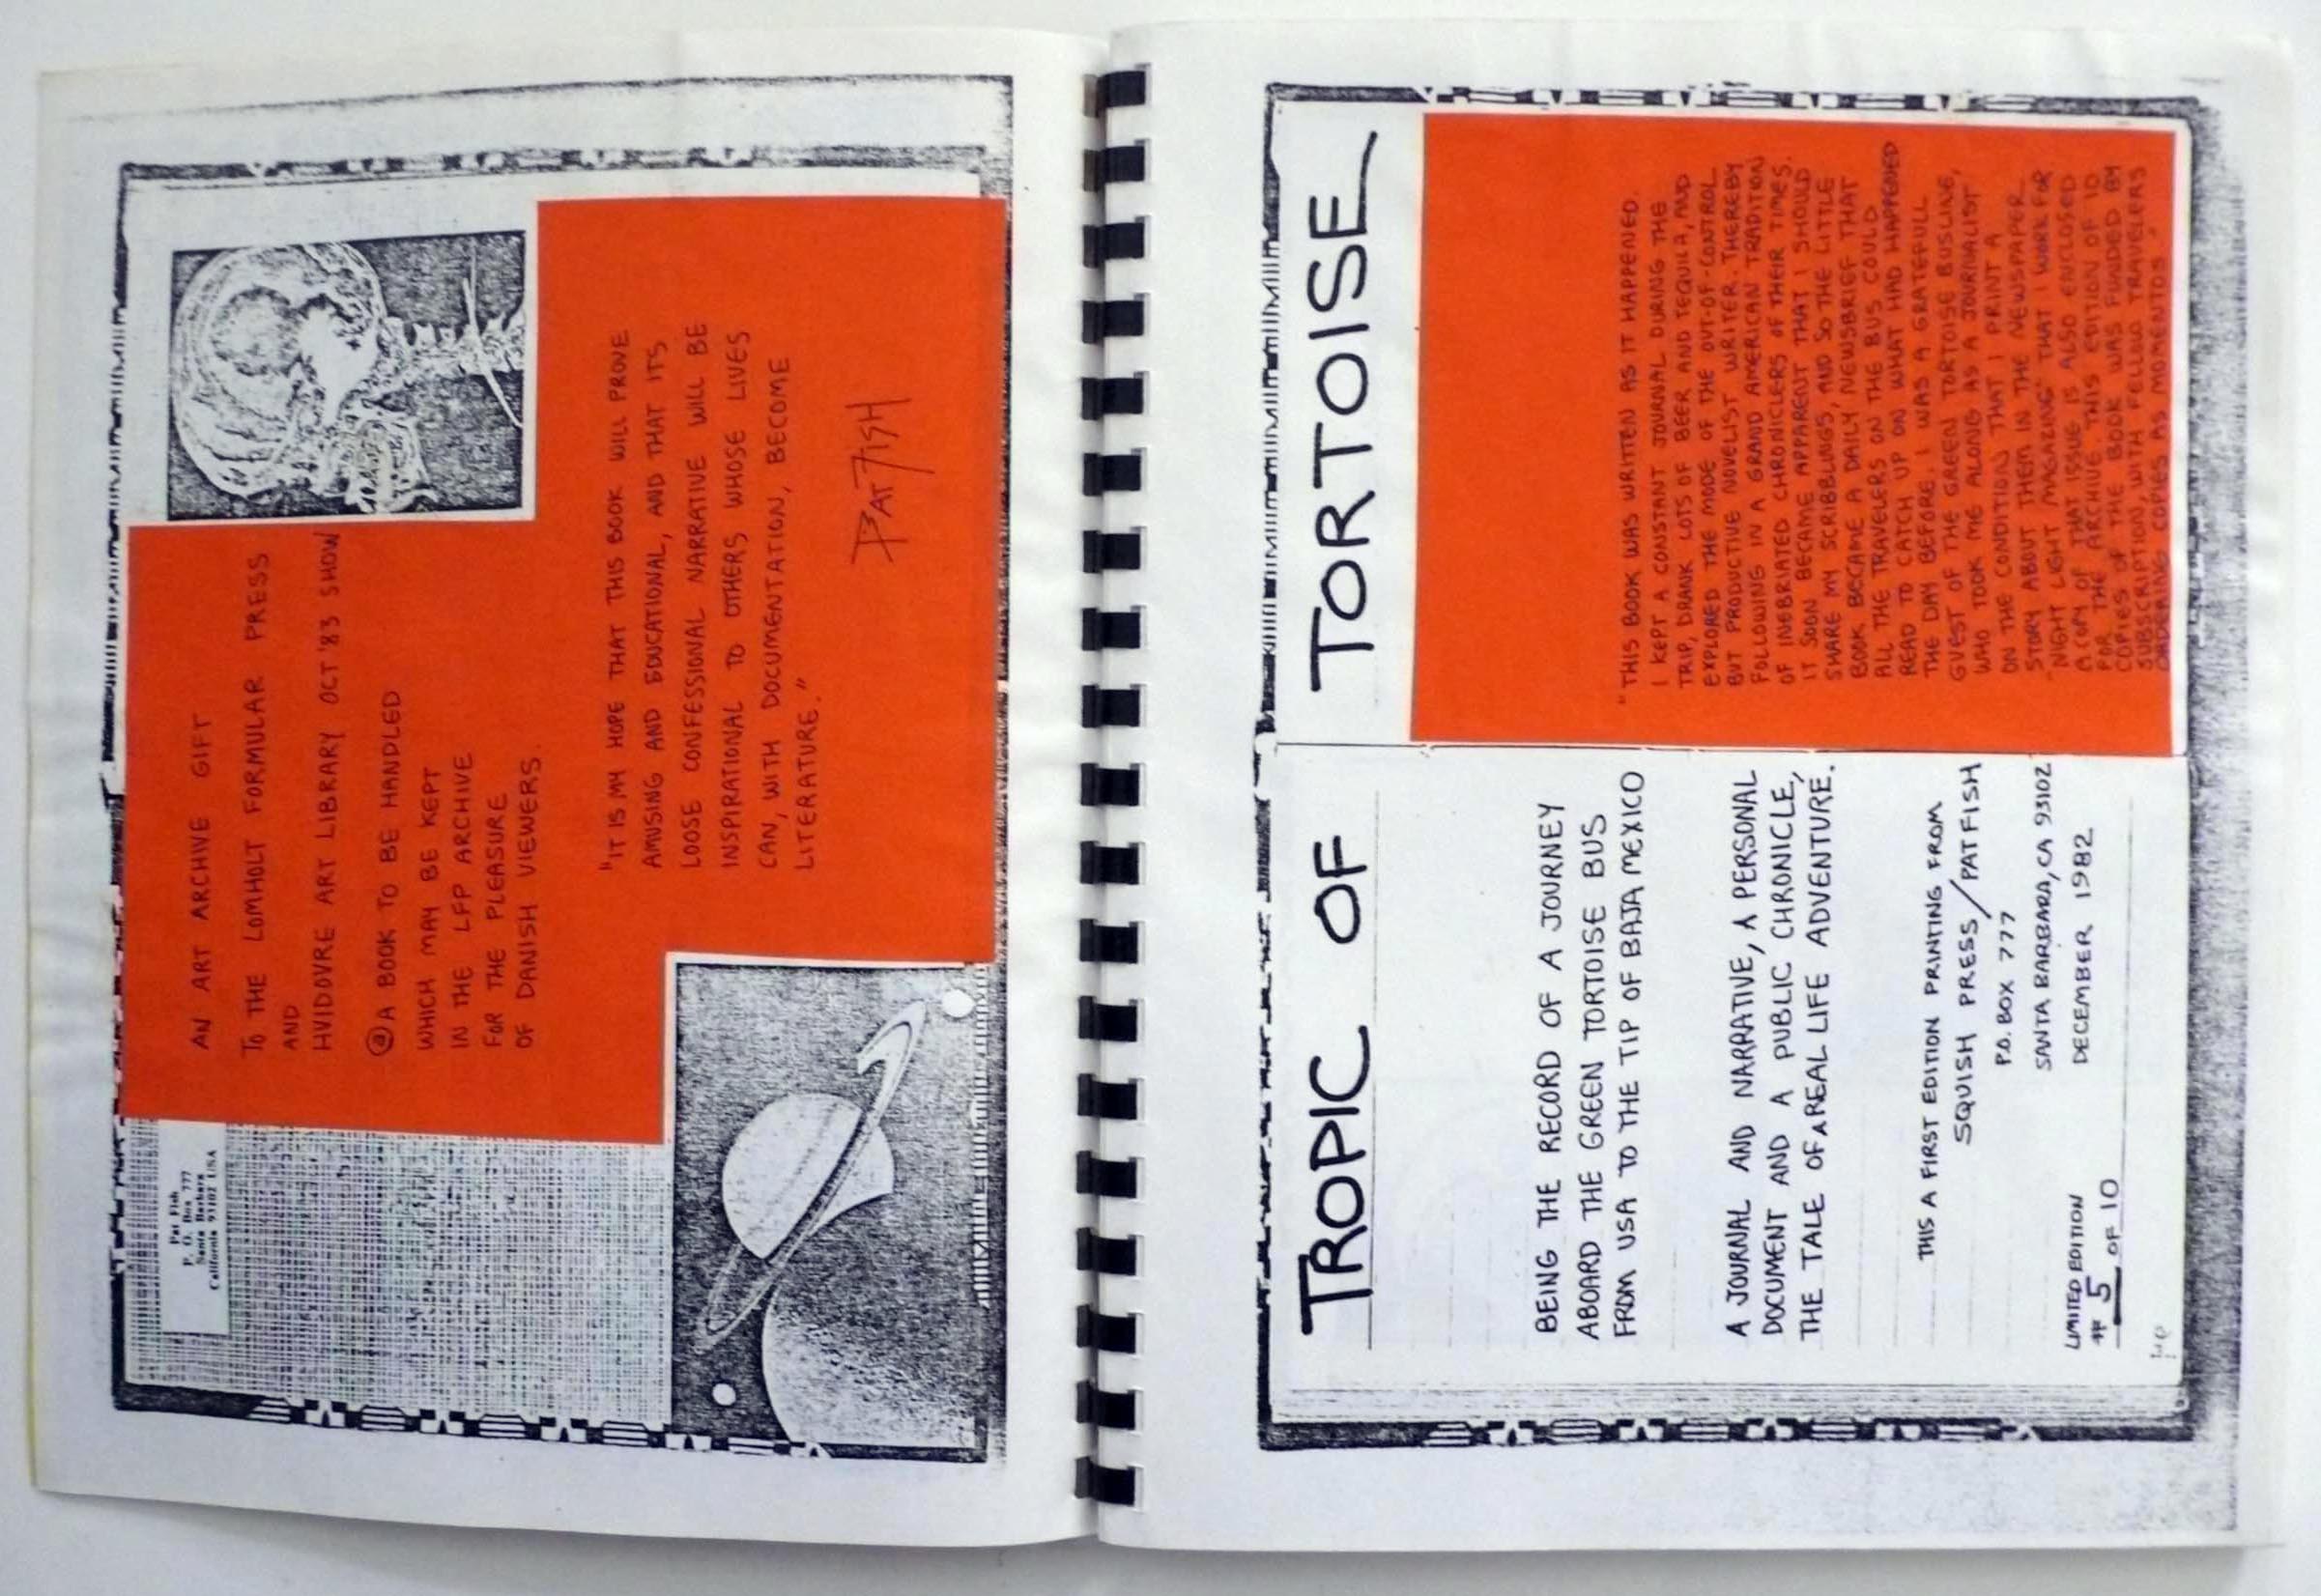 AN ART ARCHIVE GIFT
TO THE LOMHOLT FORMULAR PRESS
AND
HVIDOVRE ART LIBRARY OCT '83 SHOW
@ A BOOK TO BE HANDLED
WHICH MAY BE KEPT
IN THE LFP ARCHIVE
FOR THE PLEASURE
OF DANISH VIEWERS.
"IT IS MY HOPE THAT THIS BOOK WILL PROVE
AMUSING AND EDUCATIONAL, AND THAT ITS
LOOSE CONFESSIONAL NARRATIVE WILL BE
INSPIRATIONAL TO OTHERS WHOSE LIVES
CAN, WITH DOCUMENTATION, BECOME
LITERATURE."
PAT FISH
Pat Fish
P. O. Box 777
Santa Barbara
California 93102 USA
TROPIC OF TORTOISE
BEING THE RECORD OF A JOURNEY
ABOARD THE GREEN TORTOISE BUS
FROM USA TO THE TIP OF BAJA MEXICO
A JOURNAL AND NARRATIVE, A PERSONAL
DOCUMENT AND A PUBLIC CHRONICLE,
THE TALE OF A REAL LIFE ADVENTURE.
THIS A FIRST EDITION PRINTING FROM
SQUISH PRESS / PAT FISH
P.O. BOX 777
SANTA BARBARA, CA 93102
DECEMBER 1982
LIMITED EDITION
# 5 OF 10
"THIS BOOK WAS WRITTEN AS IT HAPPENED.
I KEPT A CONSTANT JOURNAL DURING THE
TRIP, DRANK LOTS OF BEER AND TEQUILA, AND
EXPLORED THE MODE OF THE OUT-OF-CONTROL
BUT PRODUCTIVE NOVELIST WRITER. THEREBY
FOLLOWING IN A GRAND AMERICAN TRADITION
OF INEBRIATED CHRONICLERS OF THEIR TIMES.
IT SOON BECAME APPARENT THAT I SHOULD
SHARE MY SCRIBBLINGS, AND SO THE LITTLE
BOOK BECAME A DAILY NEWSBRIEF THAT
ALL THE TRAVELERS ON THE BUS COULD
READ TO CATCH UP ON WHAT HAD HAPPENED
THE DAY BEFORE. I WAS A GRATEFULL
GUEST OF THE GREEN TORTOISE BUSLINE,
WHO TOOK ME ALONG AS A JOURNALIST
ON THE CONDITION THAT I PRINT A
STORY ABOUT THEM IN THE NEWSPAPER
"NIGHT LIGHT MAGAZINE" THAT I WORK FOR
A COPY OF THAT ISSUE IS ALSO ENCLOSED
FOR THE ARCHIVE. THIS EDITION OF 10
COPIES OF THE BOOK WAS FUNDED BY
SUBSCRIPTION, WITH FELLOW TRAVELERS
ORDERING COPIES AS MOMENTOS."